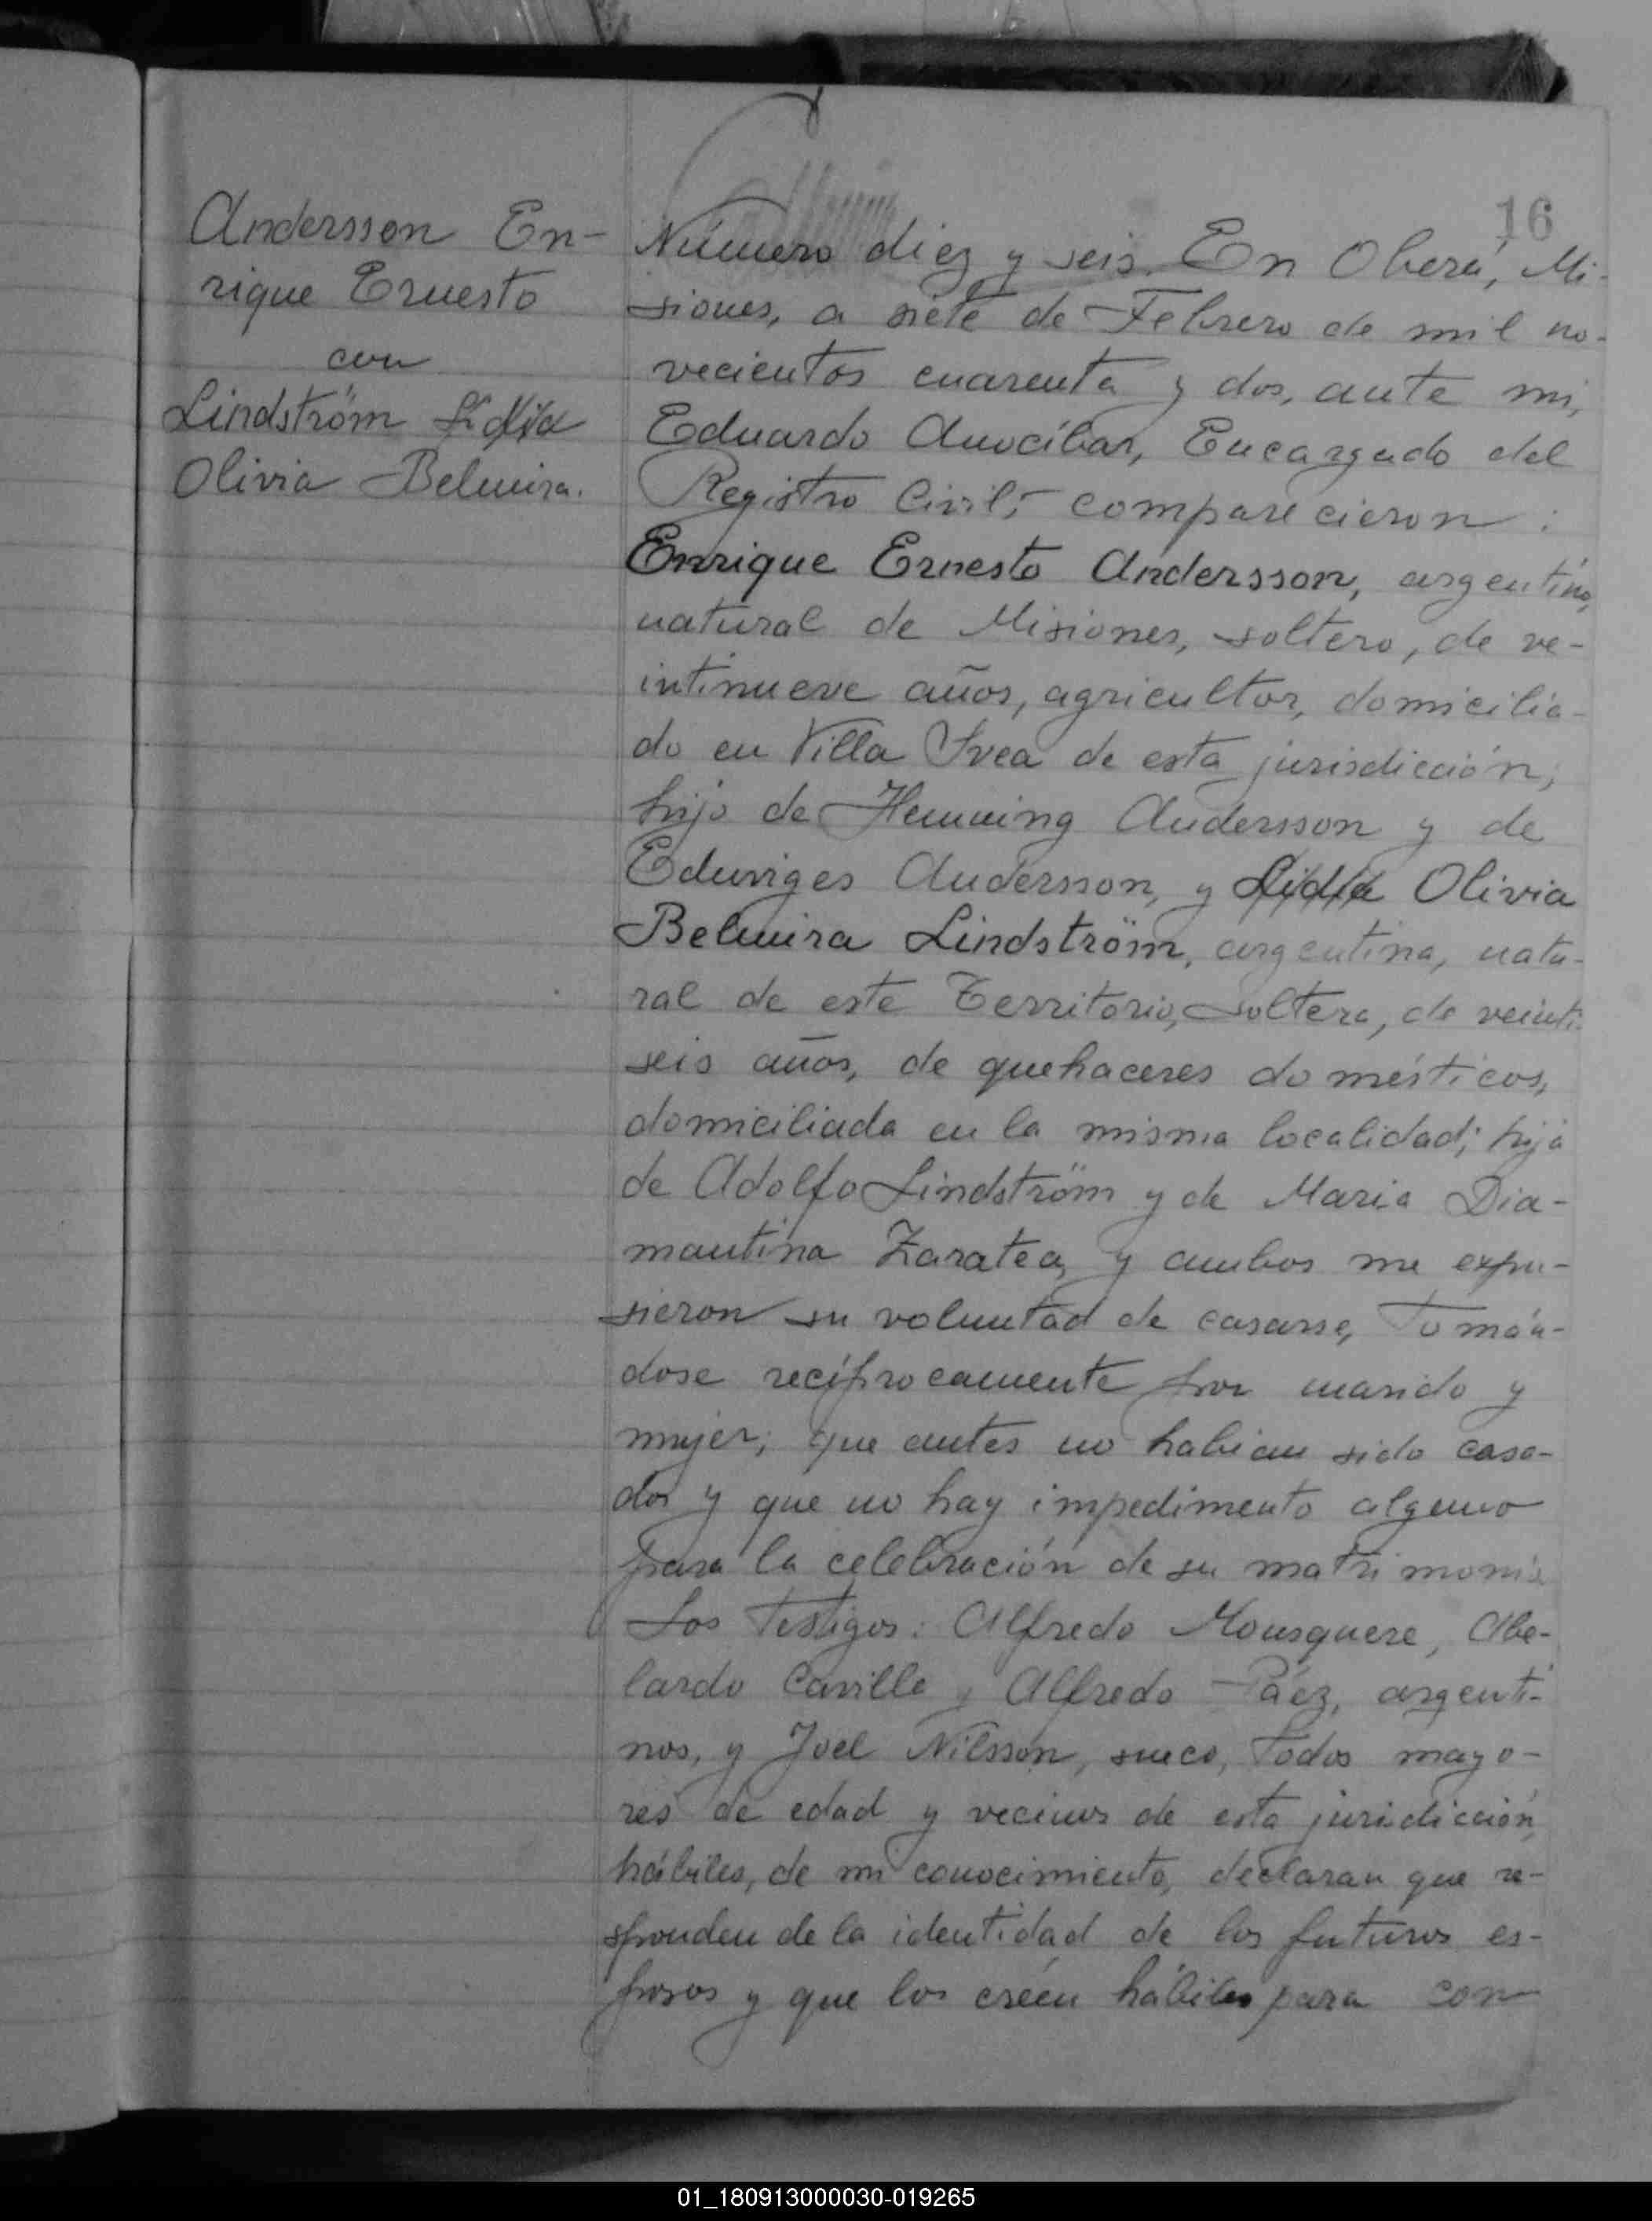 16
Andersson En-
rique Ernesto
con
Lindström Lidia
Olivia Belmira.
Número diez y seis. En Oberá, Mi-
siones, a siete de Febrero de mil no-
vecientos cuarenta y dos, ante mi,
Eduardo Anocíbar, Encargado del
Registro Civil, comparecieron :
Enrique Ernesto Andersson, argentino,
natural de Misiones, soltero, de ve-
intinueve años, agricultor, domicilia-
do en Villa Svea de esta jurisdicción;
hijo de Henning Andersson y de
Eduviges Andersson, y Lidia Olivia
Belmira Lindström, argentina, natu-
ral de este Territorio, soltera, de veinti-
seis años, de quehaceres domésticos,
domiciliada en la misma localidad; hija
de Adolfo Lindström y de Maria Dia-
mantina Zaratea, y ambos me expu-
sieron su voluntad de casarse, tomán-
dose recíprocamente por marido y
mujer; que antes no habian sido casa-
dos y que no hay impedimento alguno
para la celebración de su matrimonio.
Los testigos: Alfredo Mousquere, Abe-
lardo Caville y Alfredo Páez, argenti-
nos, y Joel Nilsson, sueco, todos mayo-
res de edad y vecinos de esta juridicción,
hábiles, de mi conocimiento, declaran que re-
sponden de la identidad de los futuros es-
posos y que los créen hábiles para con
01_180913000030-019265